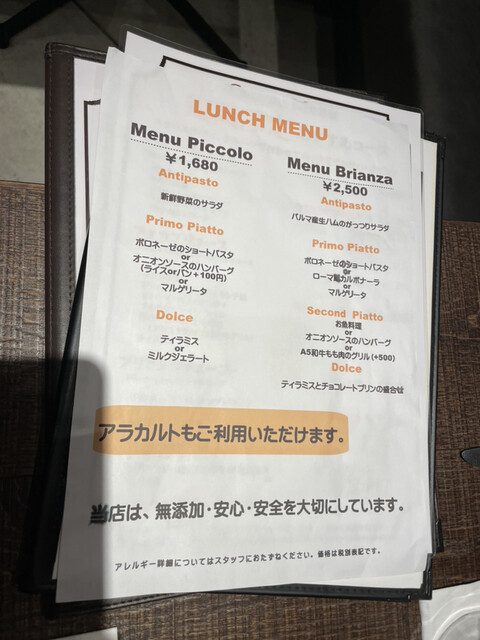 LUNCH MENU
Menu Piccolo
¥1,680
Antipasto
新鮮野菜のサラダ
Primo Piatto
ボロネーゼのショートパスタ
or
オニオンソースのハンバーグ
(ライスorパン+100円)
or
マルゲリータ
Dolce
ティラミス
or
ミルクジェラート
Menu Brianza
¥2,500
Antipasto
パルマ産生ハムのがっつりサラダ
Primo Piatto
ボロネーゼのショートパスタ
or
ローマ風カルボナーラ
or
マルゲリータ
Second Piatto
お魚料理
or
オニオンソースのハンバーグ
or
A5和牛もも肉のグリル(+500)
Dolce
ティラミスとチョコレートプリンの盛合せ
アラカルトもご利用いただけます。
当店は、無添加・安心・安全を大切にしています。
アレルギー詳細についてはスタッフにおたずねください。価格は税別表記です。